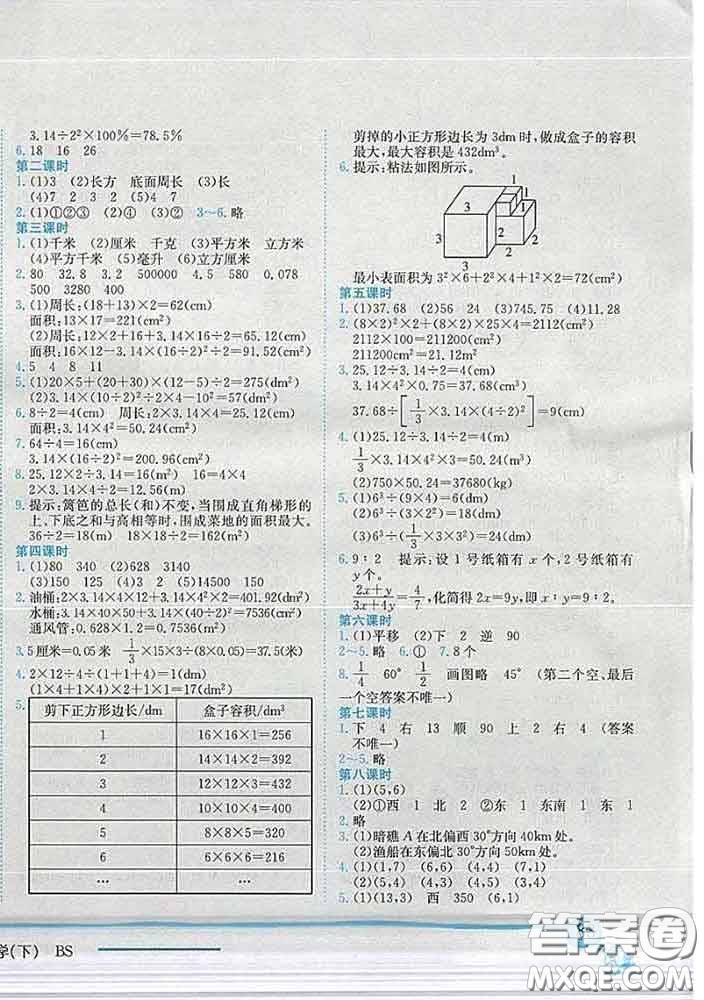 3.14÷2²×100%=78.5%
6. 18 16 26
第二课时
1. (1)3 (2)长方 底面周长 (3)长
(4)7 2 3 2 (5)4 7
2. (1)①②③ (2)④ (3)② 3～6. 略
第三课时
1. (1)千米 (2)厘米 千克 (3)平方米 立方米
(4)平方千米 (5)毫升 (6)立方厘米
2. 80 32.8 3.2 500000 4.5 580 0.078
500 3280 32 5
3. (1)周长:(18+13)×2=62(cm)
面积:13×17=221(cm²)
(2)周长:12×2+16+3.14×16÷2=65.12(cm)
面积:16×12-3.14×(16÷2)²÷2=91.52(cm²)
4. 5 4 8 11
5. (1)20×5+(20+30)×(12-5)÷2=275(dm²)
(2)3.14×(10÷2)²÷2×4-10²=57(dm²)
6. 8÷2=4(cm) 周长:2×3.14×4=25.12(cm)
面积:3.14×4²=50.24(cm²)
7. 64÷4=16(cm)
3.14×(16÷2)²=200.96(cm²)
8. 25.12×2÷3.14=16(m²) 16=4×4
2×3.14×4÷2=12.56(m)
9. 提示:篱笆的总长(和)不变,当围成直角梯形的
上、下底之和与高相等时,围成菜地的面积最大。
36÷2=18(m) 18×18÷2=162(m²)
第四课时
1. (1)80 340 (2)628 3140
(3)150 125 (4)3 2 (5)14500 150
2. 油桶:2×3.14×4×12+3.14×4²×2=401.92(dm²)
水桶:3.14×40×50+3.14×(40÷2)²=7536(cm²)
通风管:0.628×1.2=0.7536(m²)
3. 5厘米=0.05米 1/3×15×3÷(8×0.05)=37.5(米)
4. 2×12÷4÷(1+1+4)=1(dm)
(1×4+1×4)×2+1×1=17(dm²)
5.
剪下正方形边长/dm 盒子容积/dm³
1 16×16×1=256
2 14×14×2=392
3 12×12×3=432
4 10×10×4=400
5 8×8×5=320
6 6×6×6=216
… …
剪掉的小正方形边长为3dm时,做成盒子的容积
最大,最大容积是432dm³。
6. 提示:粘法如图所示。
1
1
3 1
2
3 2
3
最小表面积为3²×6+2²×4+1²×2=72(cm²)
第五课时
1. (1)37.68 (2)56 24 (3)745.75 (4)11.28
2. (8×2)²×2+(8×2)×25×4=2112(cm²)
2112×100=211200(cm²)
211200cm²=21.12m²
3. 25.12÷3.14÷2=4(cm)
3.14×4²×0.75=37.68(cm³)
37.68÷[1/3×3.14×(4÷2)²]=9(cm)
4. (1)25.12÷3.14÷2=4(m)
1/3×3.14×4²×3=50.24(m³)
(2)750×50.24=37680(kg)
5. (1)6³÷(9×4)=6(dm)
(2)6³÷(6×4)=9(dm)
(3)6³÷(1/3×3×2)=108(dm)
6. 9∶2 提示:设1号纸箱有x个,2号纸箱有
y个。
2x+y/3x+4y=4/7,化简得2x=9y,即x∶y=9∶2。
第六课时
1. (1)平移 (2)下 2 逆 90
2～5. 略 6.① 7.8个
8. 1/4 60° 1/2 画图略 45° (第二个空、最后
一个空答案不唯一)
第七课时
1. 下 4 右 13 顺 90 上 2 右 4 (答案
不唯一)
2～5. 略
第八课时
1. (1)(5,6)
(2)①西 1 北 2 ②东 1 南 1 东 1
2. 略
3. (1)暗礁A在北偏西30°方向40km处。
(2)渔船在东偏北30°方向50km处。
4. (1)(4,4) (4,1) (7,1)
(2)(5,4) (5,1) (8,1)
5. (1)(13,3) 西 350 (6,1)
学(下) BS
答案圈
MXQE.COM